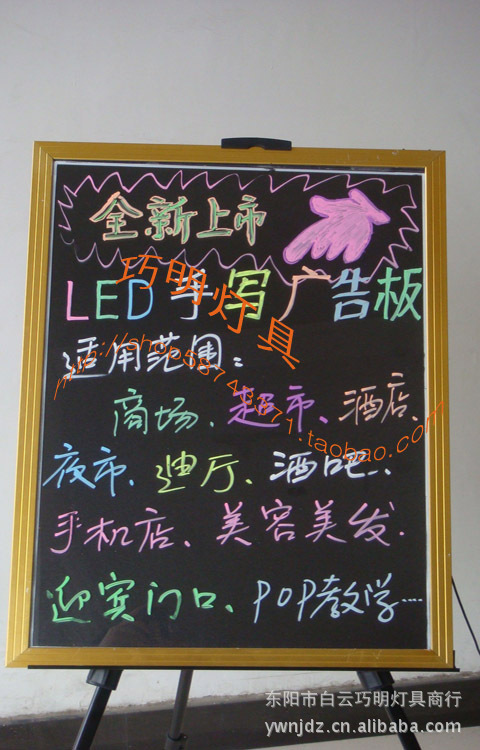 全新上市
LED手写广告板
适用范围：
商场、超市、酒店、
夜市、迪厅、酒吧、、
手机店、美容美发.
迎宾门口、POP教学……
巧明灯具
东阳市白云巧明灯具商行
ywnjdz.cn.alibaba.com